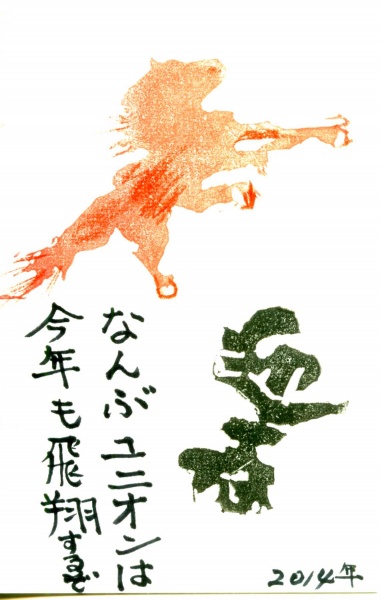 なんぶユニオンは
今年も飛翔するぞ
2014年